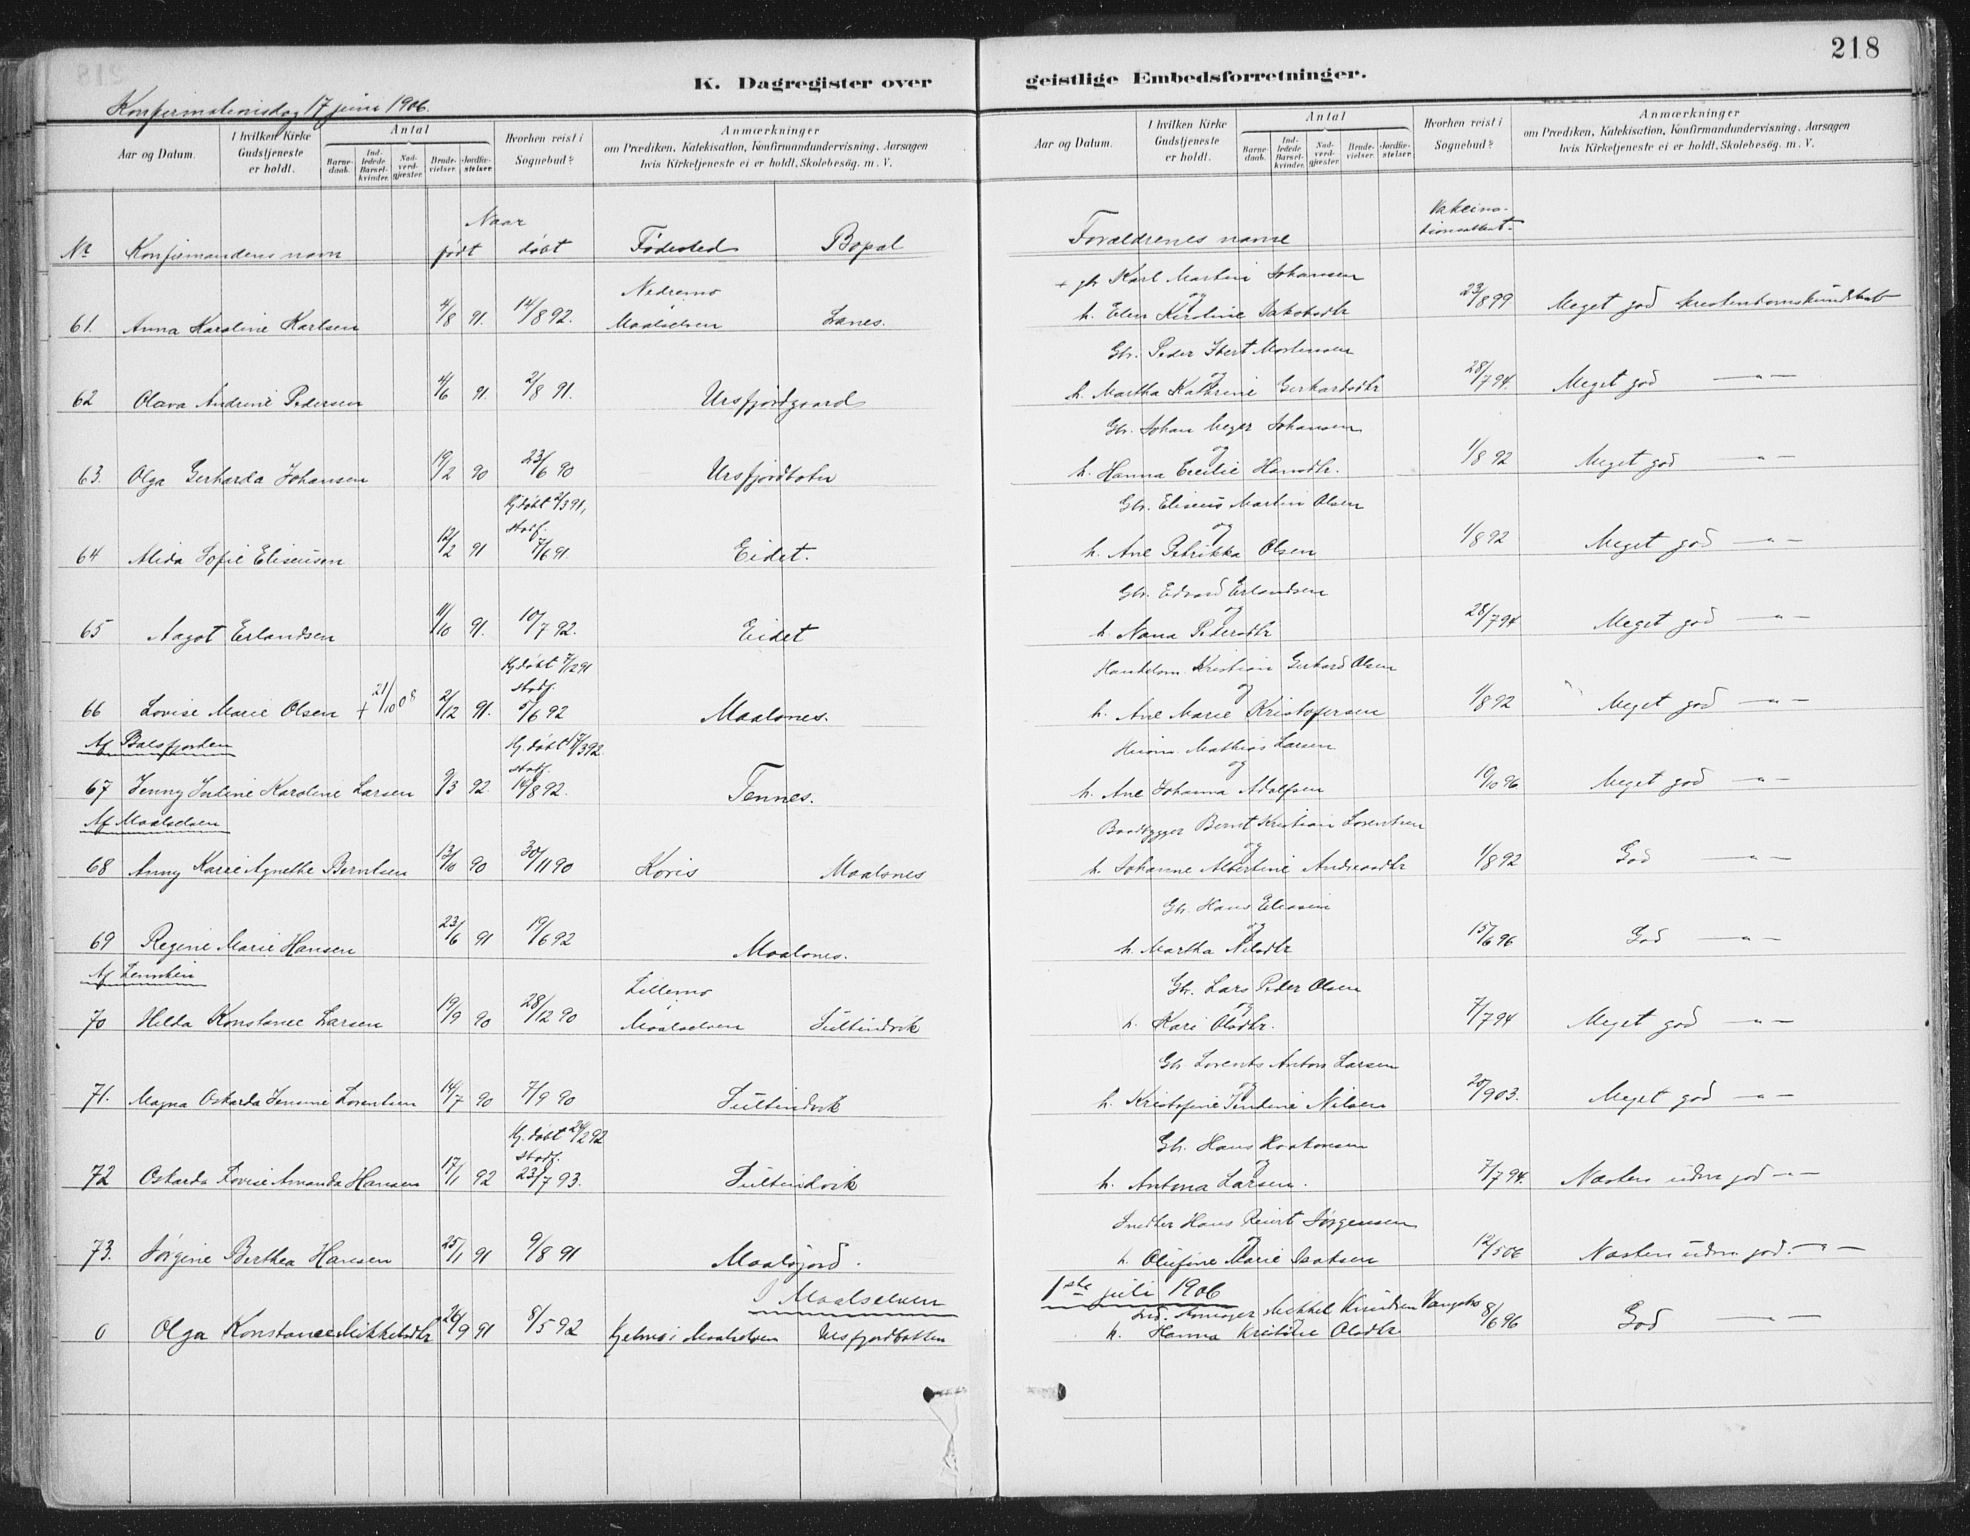 218
K. Dagregister over geistlige Embedsforretninger.
Konfirmationsdag 17 juni 1906.
Aar og Datum. I hvilken Kirke Gudstjeneste er holdt. Antal Barnedaab. Indledede Barselkvinder. Nadverdgjester Brudevielser. Jordfæstelser. Hvorhen reist i Sognebud? Anmærkninger om Prædiken, Katekisation, Konfirmandundervisning, Aarsagen hvis Kirketjeneste ei er holdt, Skolebesøg. m. V.
Aar og Datum. I hvilken Kirke Gudstjeneste er holdt. Antal Barnedaab. Indledede Barselkvinder. Nadverdgjester Brudevielser. Jordfæstelser. Hvorhen reist i Sognebud? Anmærkninger om Prædiken, Katekisation, Konfirmandundervisning, Aarsagen hvis Kirketjeneste ei er holdt. Skolebesøg. m. V.
Nr Konfirmandens navn Naar født døbt Fødested Bopæl Forældrenes navne Vakcinationsattest.
+ gbr Karl Martin Johansen og
61. Anna Karoline Karlsen 4/8 91. 14/8 92. Nedremo Maalselven Lanes. h. Elen Kirstine Jakobsdtr 23/8 99 Meget god kristendomskundskab
Gbr. Peder Ibert Mortensen og
62 Olava Andrine Pedersen 4/6 91 2/8 91. Ursfjordgaard h. Martha Kathrine Gerhardsdtr 28/7 94. Meget god —"—
Gbr. Johan Meyer Johansen og
63. Olga Gerharda Johansen 19/2 90 23/6 90 Ursfjordboten h. Hanna Cecilie Hansdtr. 1/8 92 Meget god —"—
Gbr. Eliseus Martin Olsen og
64 Alida Sofie Eliseusen 12/2 91 Hj. døbt 2/3 91, stadf. 7/6 91 Eidet. h. Ane Petrikka Olsen 1/8 92 Meget god —"—
Gbr. Edvard Erlandsen og
65 Aagot Erlandsen 11/10 91. 10/7 92. Eidet h. Nana Pedersdtr 28/7 94 Meget god —"—
Handelsm. Kristian Gerhard Olsen og
66 Lovise Marie Olsen + 21/10 08 2/12 91. Hj. døbt 7/12 91 stadf. 5/6 92 Maalsnes. h. Ane Marie Kristofersen 1/8 92 Meget god —"—
Af Balsfjorden
Husm. Mathias Larsen og
67 Jenny Indine Karoline Larsen 9/3 92. Hj. døbt 17/3 92 stadf. 14/8 92. Tennes. h. Ane Johanna Adolfsen 19/10 96 Meget god —"—
Af Maalselven
Baadbygger Bernt Kristian Lorentsen og
68 Anny Karie Agnethe Berntsen 13/10 90 30/11 90 Køris Maalsnes h. Johanne Albertine Andreasdtr 1/8 92 God —"—
Gbr. Hans Eliasen og
69 Regine Marie Hansen 23/6 91 19/6 92 Maalsnes. h. Martha Nilsdtr 15/6 96 God —"—
Af Lenviken
Gbr. Lars Peder Olsen og
70 Hilda Konstance Larsen 19/9 90 28/12 90 Lillemo Maalselven Sultindvik h. Kari Olsdtr. 7/7 94 Meget god —"—
Gbr. Lorents Anton Larsen og
71. Magna Oskarda Jensine Lorentsen 14/7 90 7/9 90 Sultindvik h. Kristofine Indine Nilsen 20/9 03. Meget god —"—
Gbr. Hans Haakonsen og
72 Oskarda Lovise Amanda Hansen 17/1 92 Hj. døbt 24/2 92 stadf. 23/7 93. Sultindvik h. Antona Larsen. 7/7 94. Næsten udm god —"—
Snedker Hans Reiert Jørgensen og
73. Jørgine Berthea Hansen 25/1 91 9/8 91 Maalsjord. h. Olufine Marie Isaksen 12/5 06 Næsten udm god. —"—
I Maalselven 1ste juli 1906
Mikkel Knudsen
0 Olga Konstance Mikkelsdtr 26/9 91 8/5 92 Maalselven Ursfjordbotten h. Hanna Kristine Olsdtr 8/6 96 God —"—